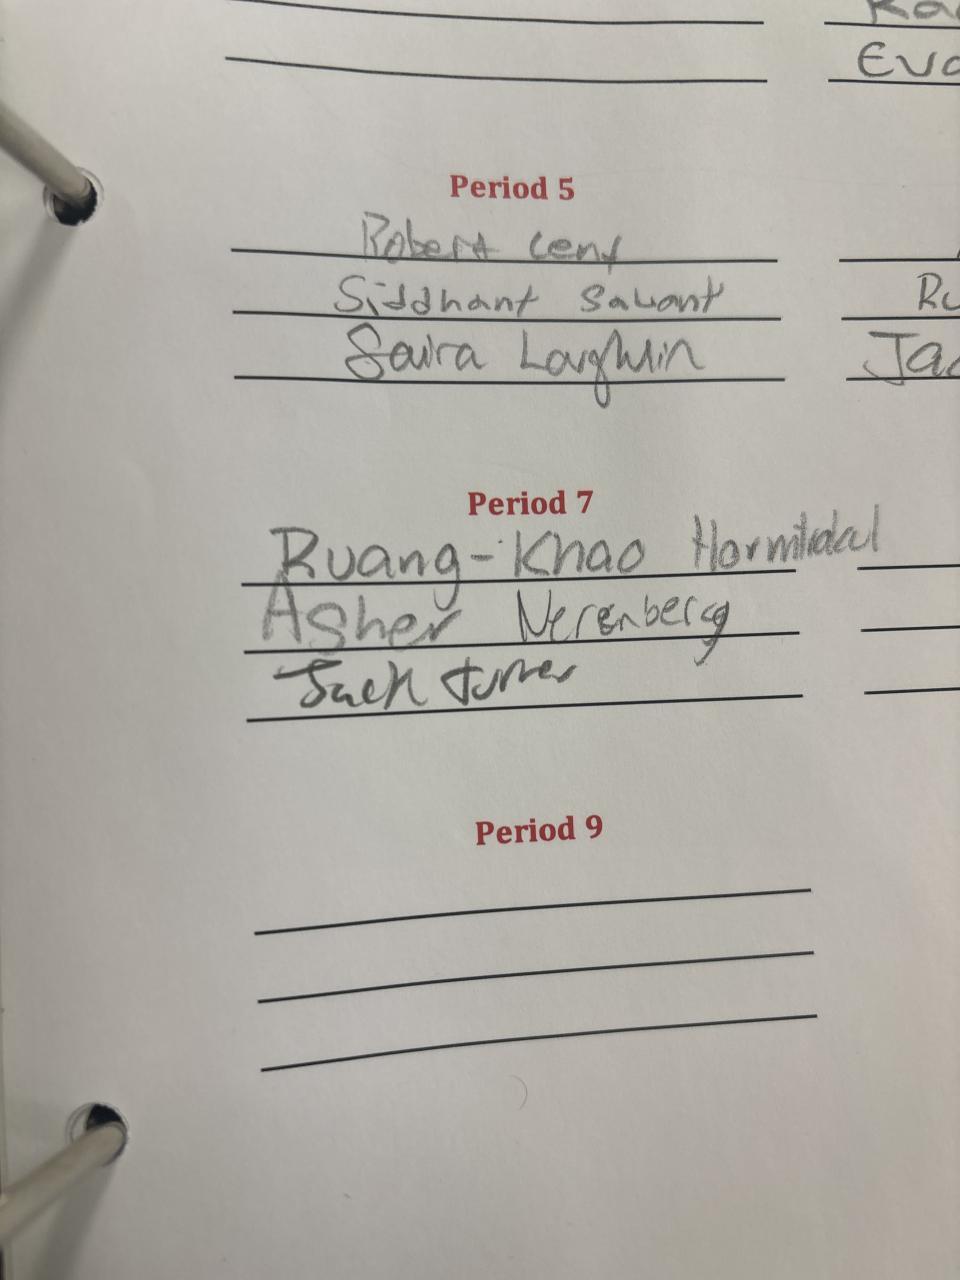 Eva
Period 5
Robert Lent
Siddhant Sawant
Ru
Saira Loughlin
Jac
Period 7
Ruang-Khao
Asher Nerenberg
Jack Turner
Period 9